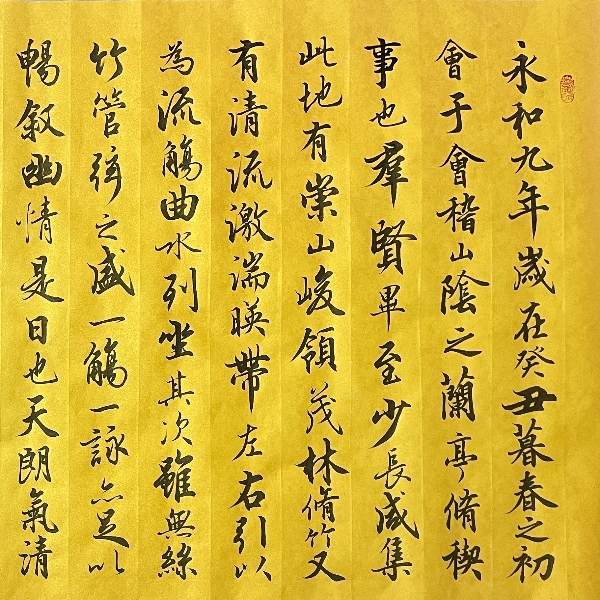 永和九年歲在癸丑暮春之初
會于會稽山陰之蘭亭脩稧
事也羣賢畢至少長咸集
此地有崇山峻領茂林脩竹又
有清流激湍暎帶左右引以
為流觴曲水列坐其次雖無絲
竹管弦之盛一觴一詠亦足以
暢敘幽情是日也天朗氣清